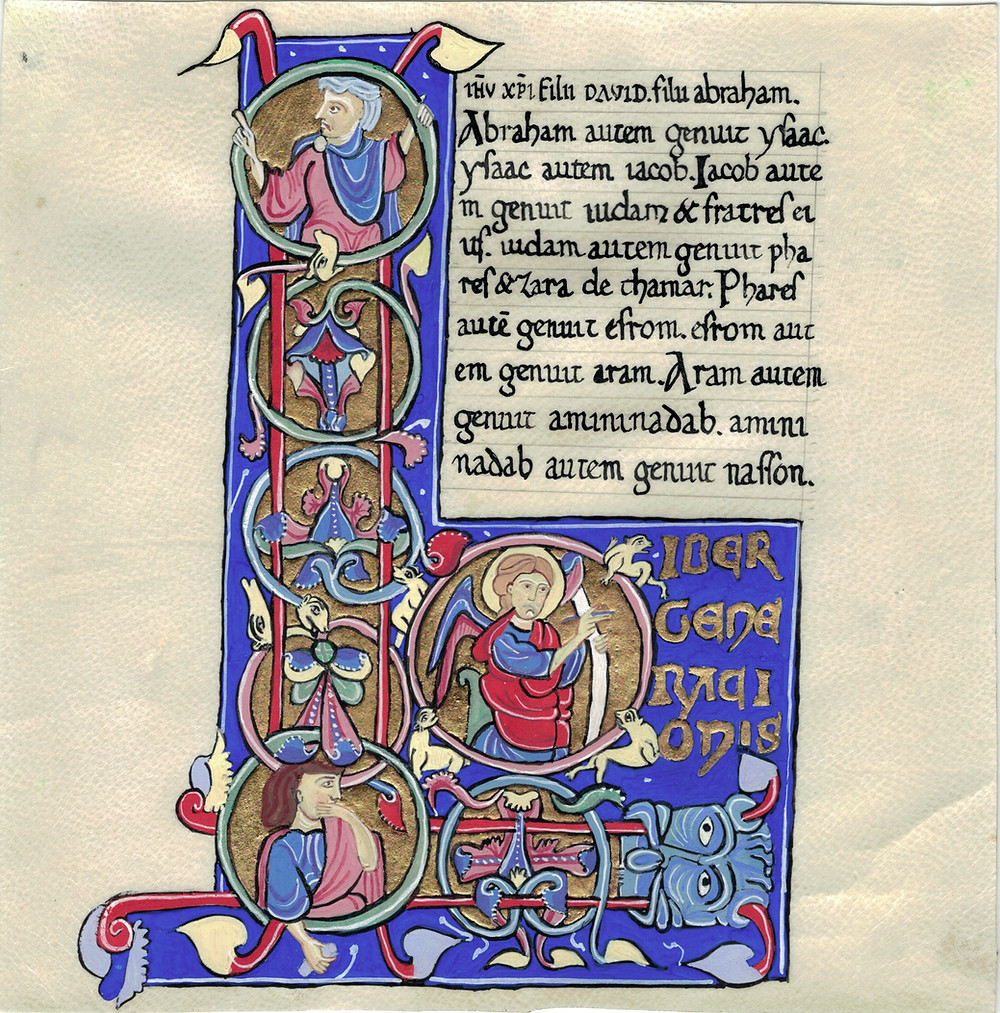 LIBER
GENE
RATI
ONIS
ih̄v xp̄i filii DAVID. filii abraham.
Abraham autem genuit yſaac.
yſaac autem iacob. Iacob aute
m genuit iudam & fratreſ ei
uſ. iudam autem genuit pha
reſ & zara de thamar. Phareſ
autē genuit eſrom. eſrom aut
em genuit aram. Aram autem
genuit amininadab. amini
nadab autem genuit naſſon.